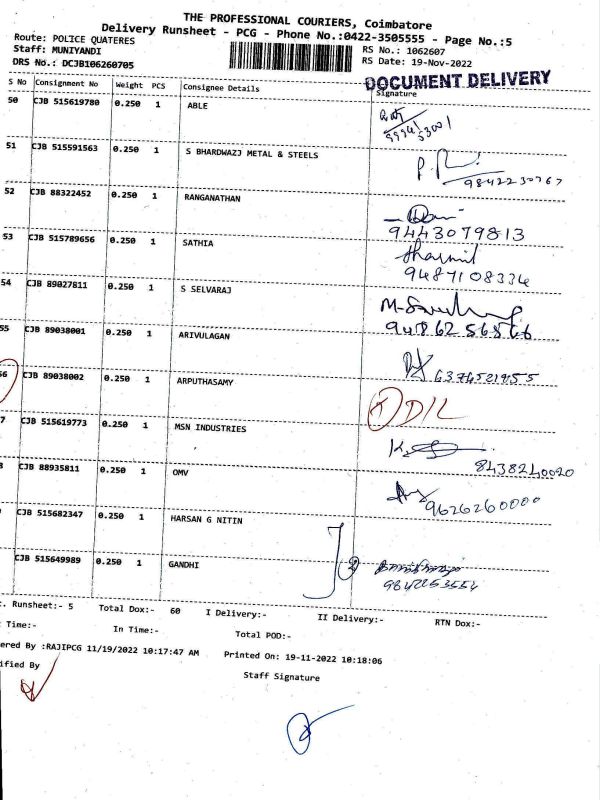 THE PROFESSIONAL COURIERS, Coimbatore
Delivery Runsheet - PCG - Phone No.:0422-3505555 - Page No.:5
Route: POLICE QUATERES
RS No.: 1062607
Staff: MUNIYANDI
RS Date: 19-Nov-2022
DRS No.: DCJB106260705
DOCUMENT DELIVERY
S No Consignment No Weight PCS Consignee Details Signature
50 CJB 515619780 0.250 1 ABLE
51 CJB 515591563 0.250 1 S BHARDWAZJ METAL & STEELS
9842230767
52 CJB 88322452 0.250 1 RANGANATHAN
9443079813
53 CJB 515789656 0.250 1 SATHIA
9487108334
54 CJB 89027811 0.250 1 S SELVARAJ
55 CJB 89038001 0.250 1 ARIVULAGAN
6374521955
56 CJB 89038002 0.250 1 ARPUTHASAMY
D/L
7 CJB 515619773 0.250 1 MSN INDUSTRIES
8438240020
8 CJB 88935811 0.250 1 OMV
9626260000
CJB 515682347 0.250 1 HARSAN G NITIN
CJB 515649989 0.250 1 GANDHI
. Runsheet:- 5 Total Dox:- 60 I Delivery:- II Delivery:- RTN Dox:-
Time:- In Time:- Total POD:-
ered By :RAJIPCG 11/19/2022 10:17:47 AM Printed On: 19-11-2022 10:18:06
ified By Staff Signature